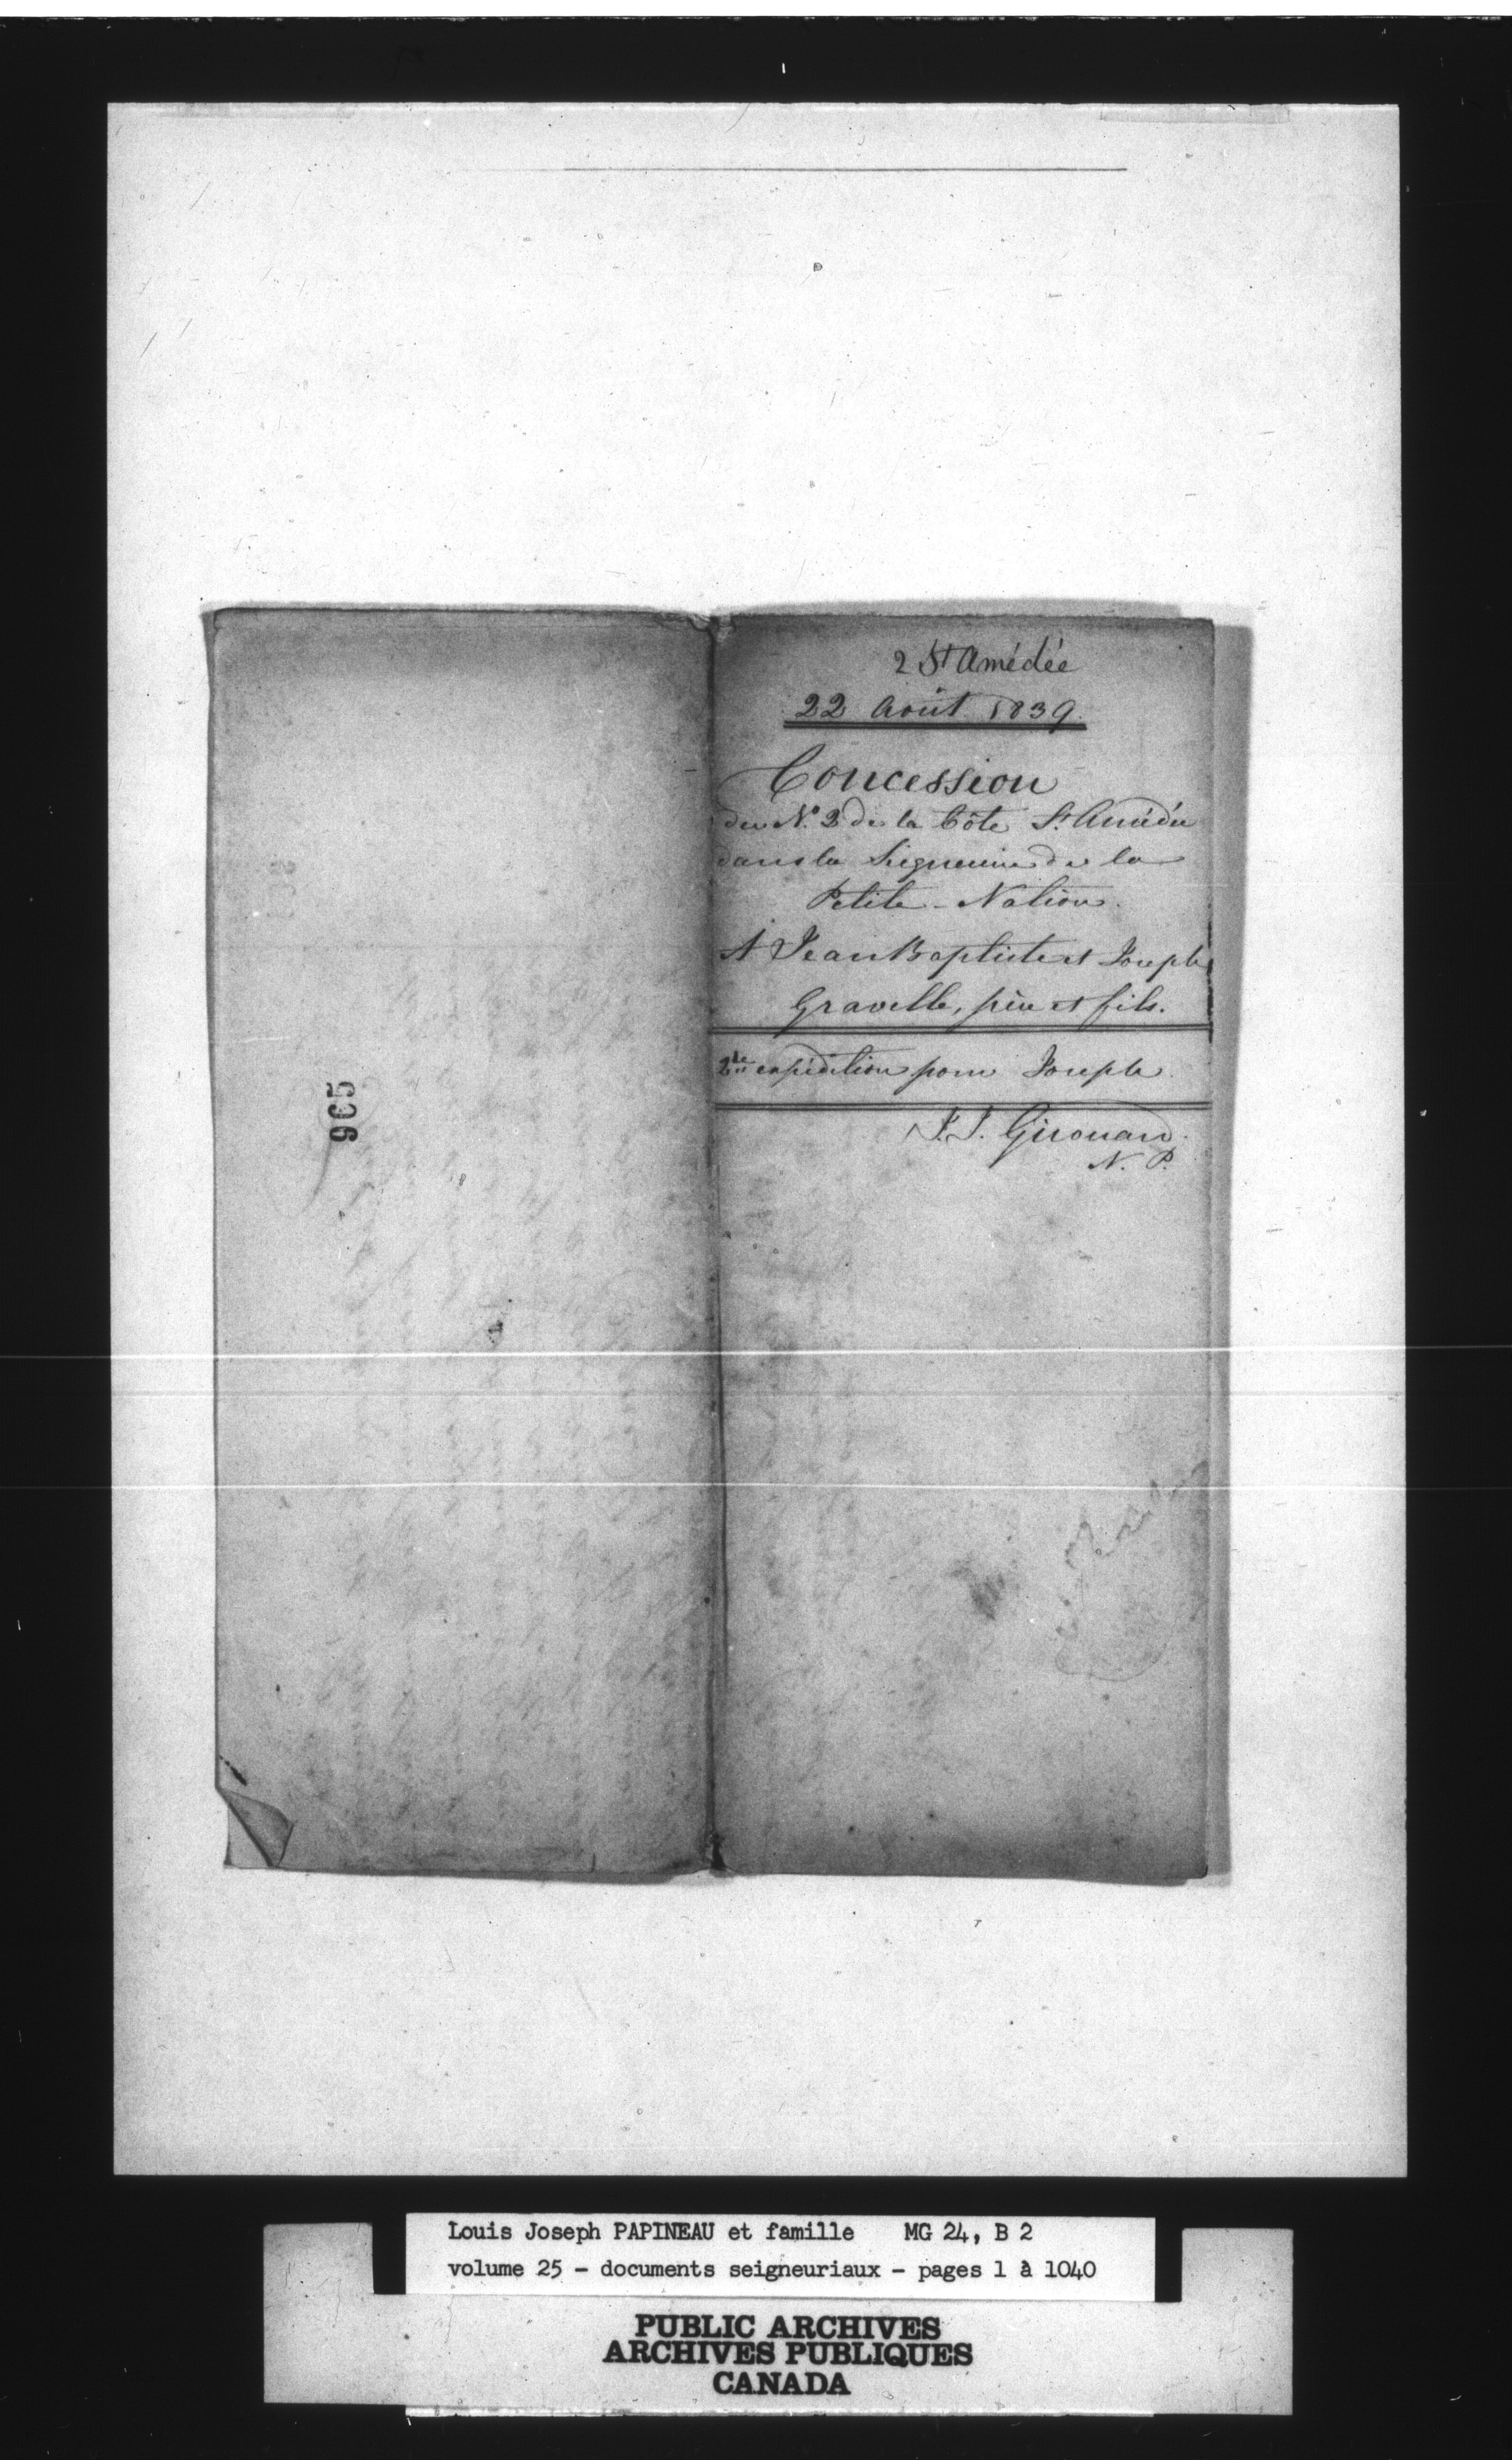 2 St Amédée
22 Août 1839.
Concession
du No. 2 de la Côte St. Amédée
dans la Seigneurie de la
Petite-Nation.
A Jean Baptiste et Joseph
Gravelle, père et fils.
2de expédition pour Joseph.
J. J. Girouard.
N. P.
965
Louis Joseph PAPINEAU et famille MG 24, B 2
volume 25 - documents seigneuriaux - pages 1 à 1040
PUBLIC ARCHIVES
ARCHIVES PUBLIQUES
CANADA